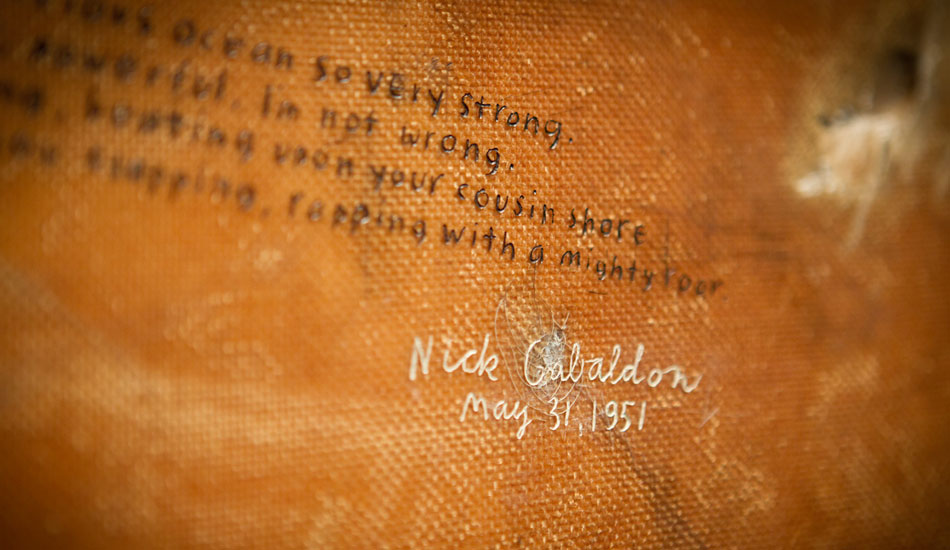 ocean so very strong.
powerful. im not wrong.
beating upon your cousin shore
rapping with a mighty roar.
Nick Gabaldon
May 31, 1951